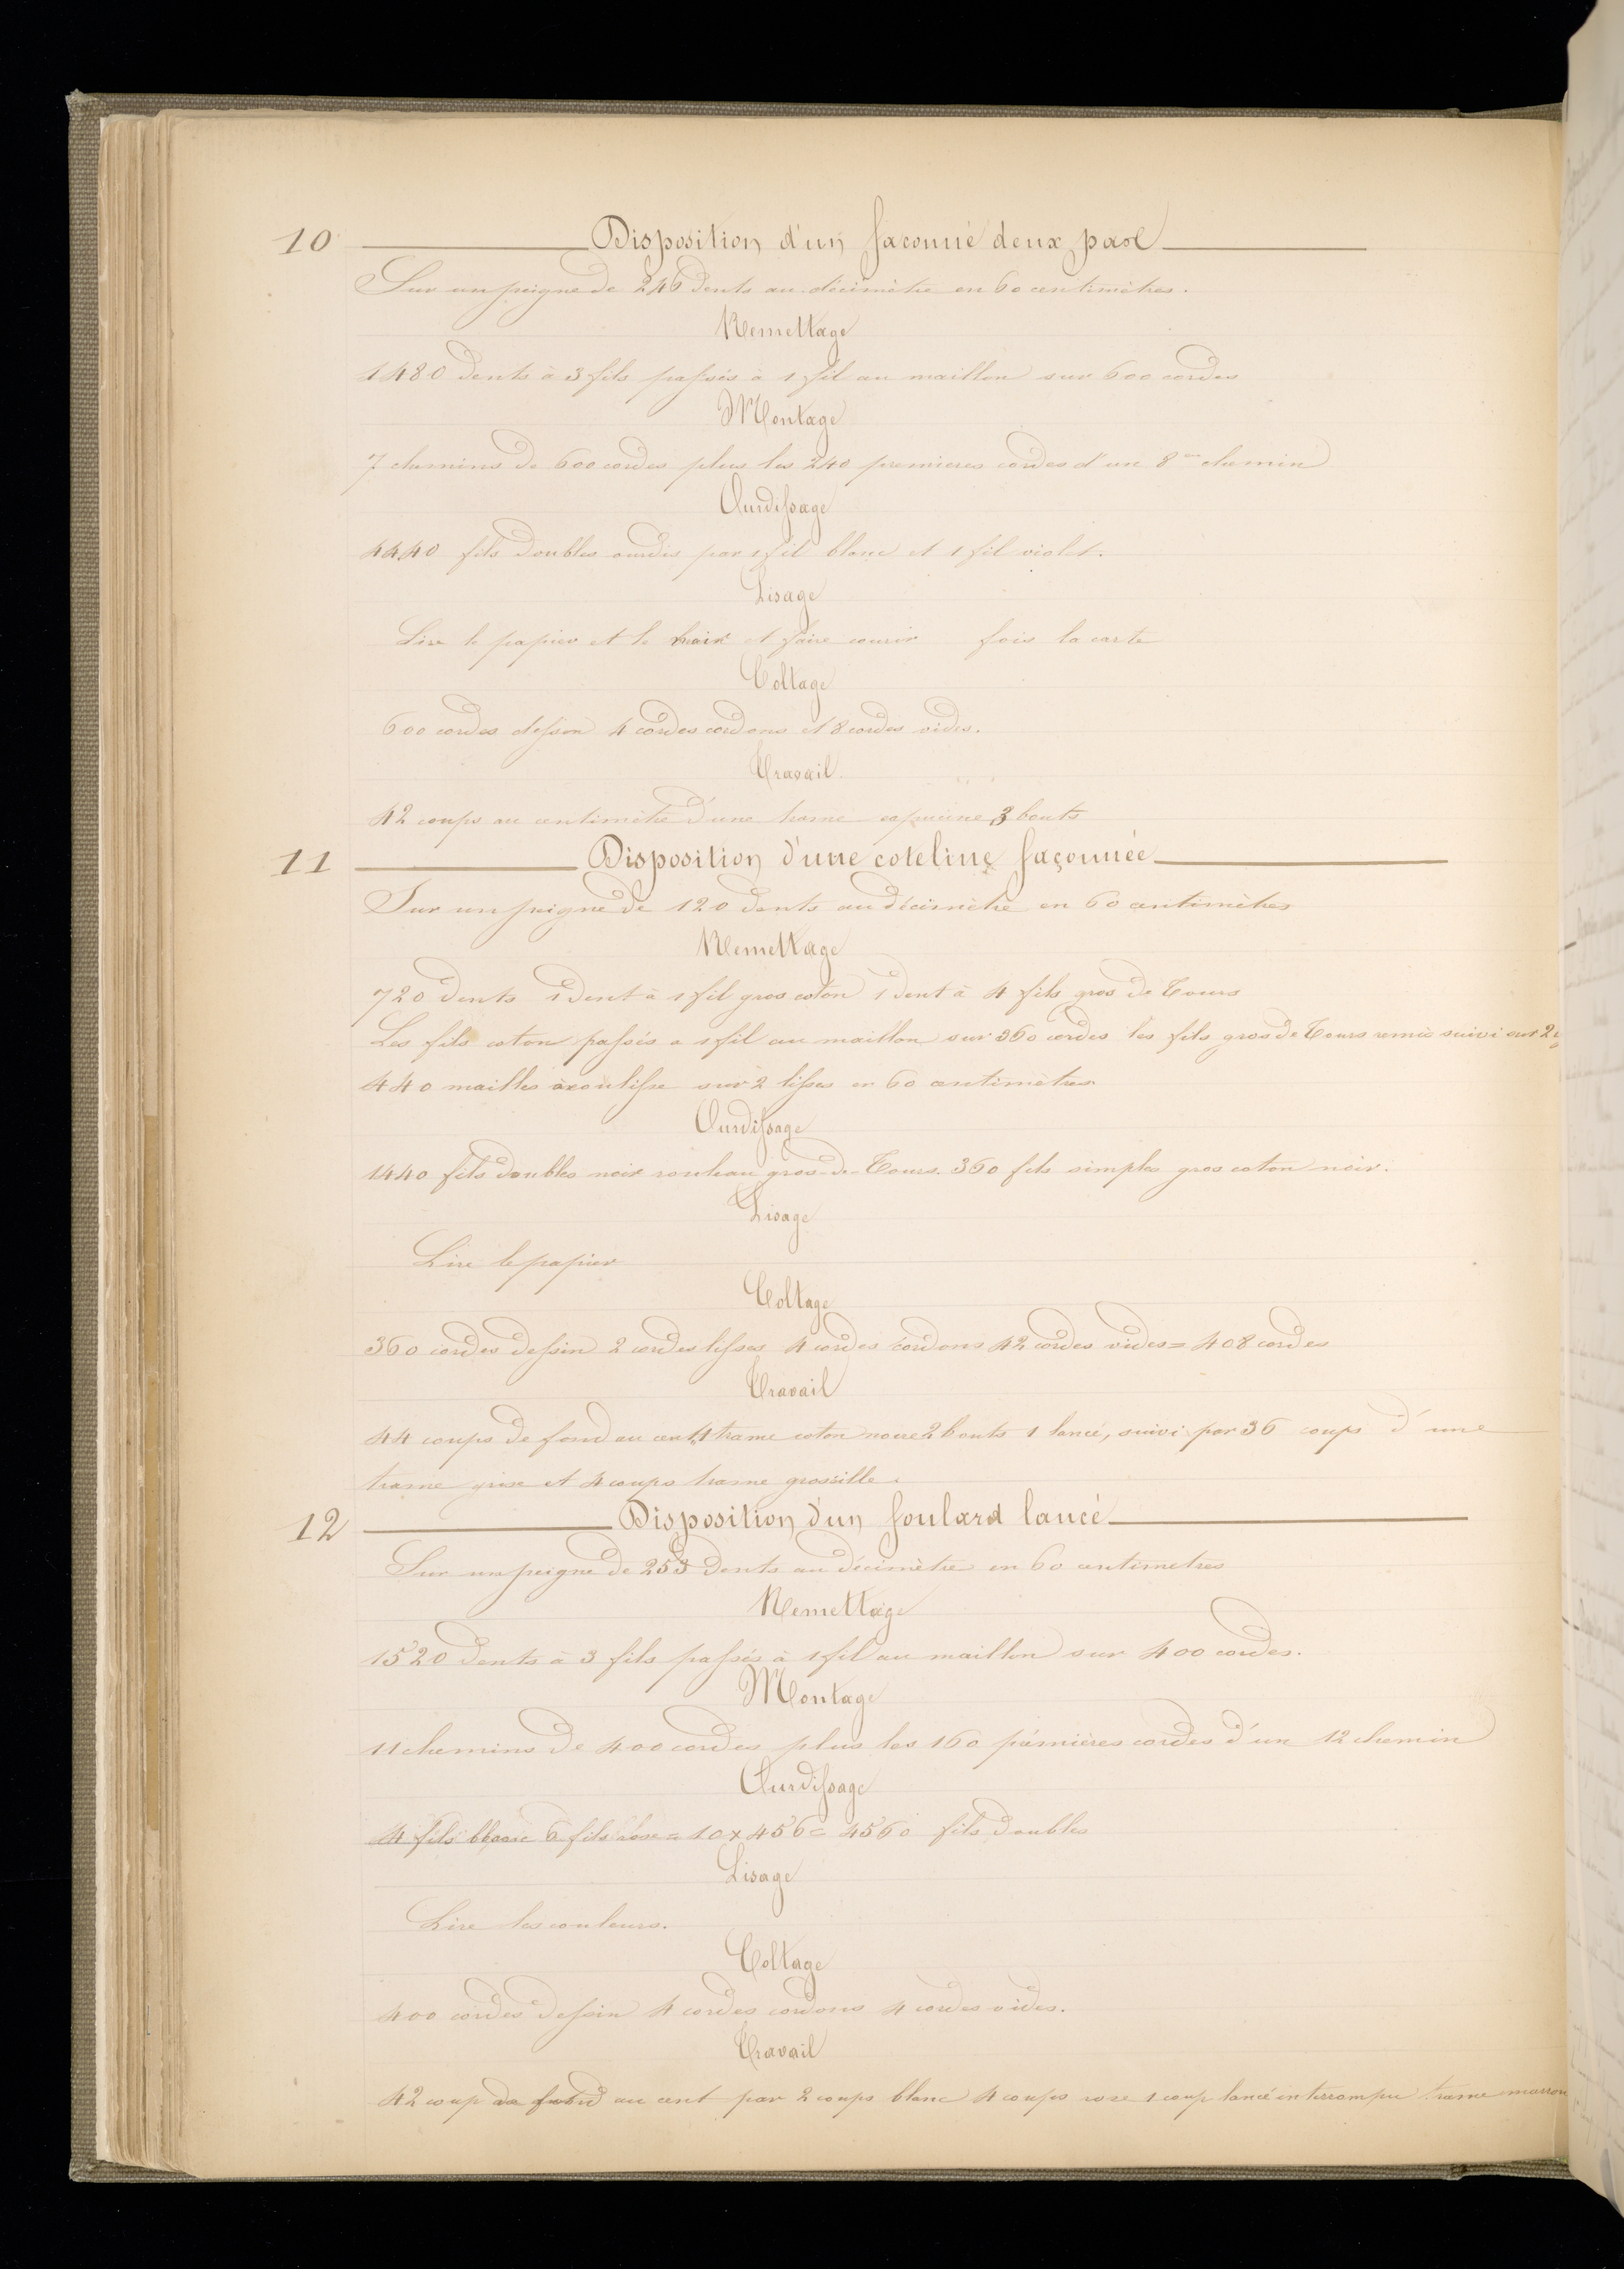 10 Disposition d'un façonné deux pas
Sur un peigne de 246 dents au décimètre en 60 centimètres.
Remettage
1480 dents à 3 fils passés à 1 fil au maillon sur 600 cordes
Montage
7 chemins de 600 cordes plus les 240 premieres cordes d'un 8me chemin
Ourdissage
4440 fils doubles ourdis par 1 fil blanc et 1 fil violet.
Lisage
Lire le papier et le et faire courir fois la carte
Coltage
600 cordes dessin 4 cordes cordons et 8 cordes vides.
Travail
42 coups au centimètre d'une trame 3 bouts
11 Disposition d'une coteline façonnée
Sur un peigne de 120 dents au décimètre en 60 centimètres
Remettage
720 dents 1 dent à 1 fil gros coton 1 dent à 4 fils gros de Tours
Les fils coton passés a 1 fil au maillon sur 360 cordes les fils gros de Tours remis suivi sur 2
440 mailles à coulisse sur 2 lisses en 60 centimètres
Ourdissage
1440 fils doubles noir rouleau gros-de-Tours. 360 fils simples gros coton noir.
Lisage
Lire le papier
Coltage
360 cordes dessin 2 cordes lisses 4 cordes cordons 42 cordes vides = 408 cordes
Travail
44 coups de fond au cent trame coton noire 2 bouts 1 lancé, suivi par 36 coups d'une
trame grise et 4 coups trame groseille.
12 Disposition d'un foulard lancé
Sur un peigne de 253 dents au décimètre en 60 centimetres
Remettage
1520 dents à 3 fils passés à 1 fil au maillon sur 400 cordes.
Montage
11 chemins de 400 cordes plus les 160 prémières cordes d'un 12 chemin
Ourdissage
4 fils blanc 6 fils rose = 10 x 456 = 4560 fils doubles
Lisage
Lire les couleurs.
Coltage
400 cordes dessin 4 cordes cordons 4 cordes vides.
Travail
42 coup de fond au cent par 2 coups blanc 4 coups rose 1 coup lancé interrompu trame marron